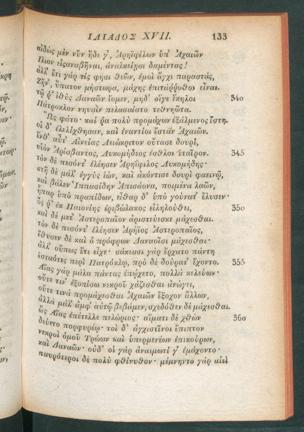 ΙΛΙΑΔΟΣ XVII. 133
αἰδὼς μὲν νῦν ἥδε γ', Ἀρηϊφίλων ὑπ' Ἀχαιῶν
Ἴλιον εἰσαναβῆναι, ἀναλκείῃσι δαμέντας!
ἀλλ' ἔτι γάρ τίς φησι θεῶν, ἐμοὶ ἄγχι παραστάς,
Ζῆν', ὕπατον μήστωρα, μάχης ἐπιτάῤῥοθον εἶναι.
τῷ ῥ' ἰθὺς Δαναῶν ἴομεν, μηδ' οἵγε ἕκηλοι 340
Πάτροκλον νηυσὶν πελασαίατο τεθνηῶτα.
Ὣς φάτο· καί ῥα πολὺ προμάχων ἐξάλμενος ἔστη.
οἱ δ' ἐλελίχθησαν, καὶ ἐναντίοι ἔσταν Ἀχαιῶν.
ἔνθ' αὖτ' Αἰνείας Λειώκριτον οὔτασε δουρί,
υἱὸν Ἀρίσβαντος, Λυκομήδεος ἐσθλὸν ἑταῖρον. 345
τὸν δὲ πεσόντ' ἐλέησεν Ἀρηΐφιλος Λυκομήδης·
στῆ δὲ μάλ' ἐγγὺς ἰών, καὶ ἀκόντισε δουρὶ φαεινῷ,
καὶ βάλεν Ἱππασίδην Ἀπισάονα, ποιμένα λαῶν,
ἧπαρ ὑπὸ πραπίδων, εἶθαρ δ' ὑπὸ γούνατ' ἔλυσεν·
ὅς ῥ' ἐκ Παιονίης ἐριβώλακος εἰληλούθει, 350
καὶ δὲ μετ' Ἀστεροπαῖον ἀριστεύεσκε μάχεσθαι.
τὸν δὲ πεσόντ' ἐλέησεν Ἀρήϊος Ἀστεροπαῖος,
ἴθυσεν δὲ καὶ ὁ πρόφρων Δαναοῖσι μάχεσθαι·
ἀλλ' οὔπως ἔτι εἶχε· σάκεσσι γὰρ ἔρχατο πάντη
ἑσταότες περὶ Πατρόκλῳ, πρὸ δὲ δούρατ' ἔχοντο. 355
Αἴας γὰρ μάλα πάντας ἐπῴχετο, πολλὰ κελεύων·
οὔτε τιν' ἐξοπίσω νεκροῦ χάζεσθαι ἀνώγει,
οὔτε τινὰ προμάχεσθαι Ἀχαιῶν ἔξοχον ἄλλων,
ἀλλὰ μάλ' ἀμφ' αὐτῷ βεβάμεν, σχεδόθεν δὲ μάχεσθαι.
ὣς Αἴας ἐπέτελλε πελώριος· αἵματι δὲ χθὼν 360
δεύετο πορφυρέῳ· τοὶ δ' ἀγχιστῖνοι ἔπιπτον
νεκροὶ ὁμοῦ Τρώων καὶ ὑπερμενέων ἐπικούρων,
καὶ Δαναῶν· οὐδ' οἱ γὰρ ἀναιμωτί γ' ἐμάχοντο·
παυρότεροι δὲ πολὺ φθίνυθον· μέμνηντο γὰρ αἰεὶ